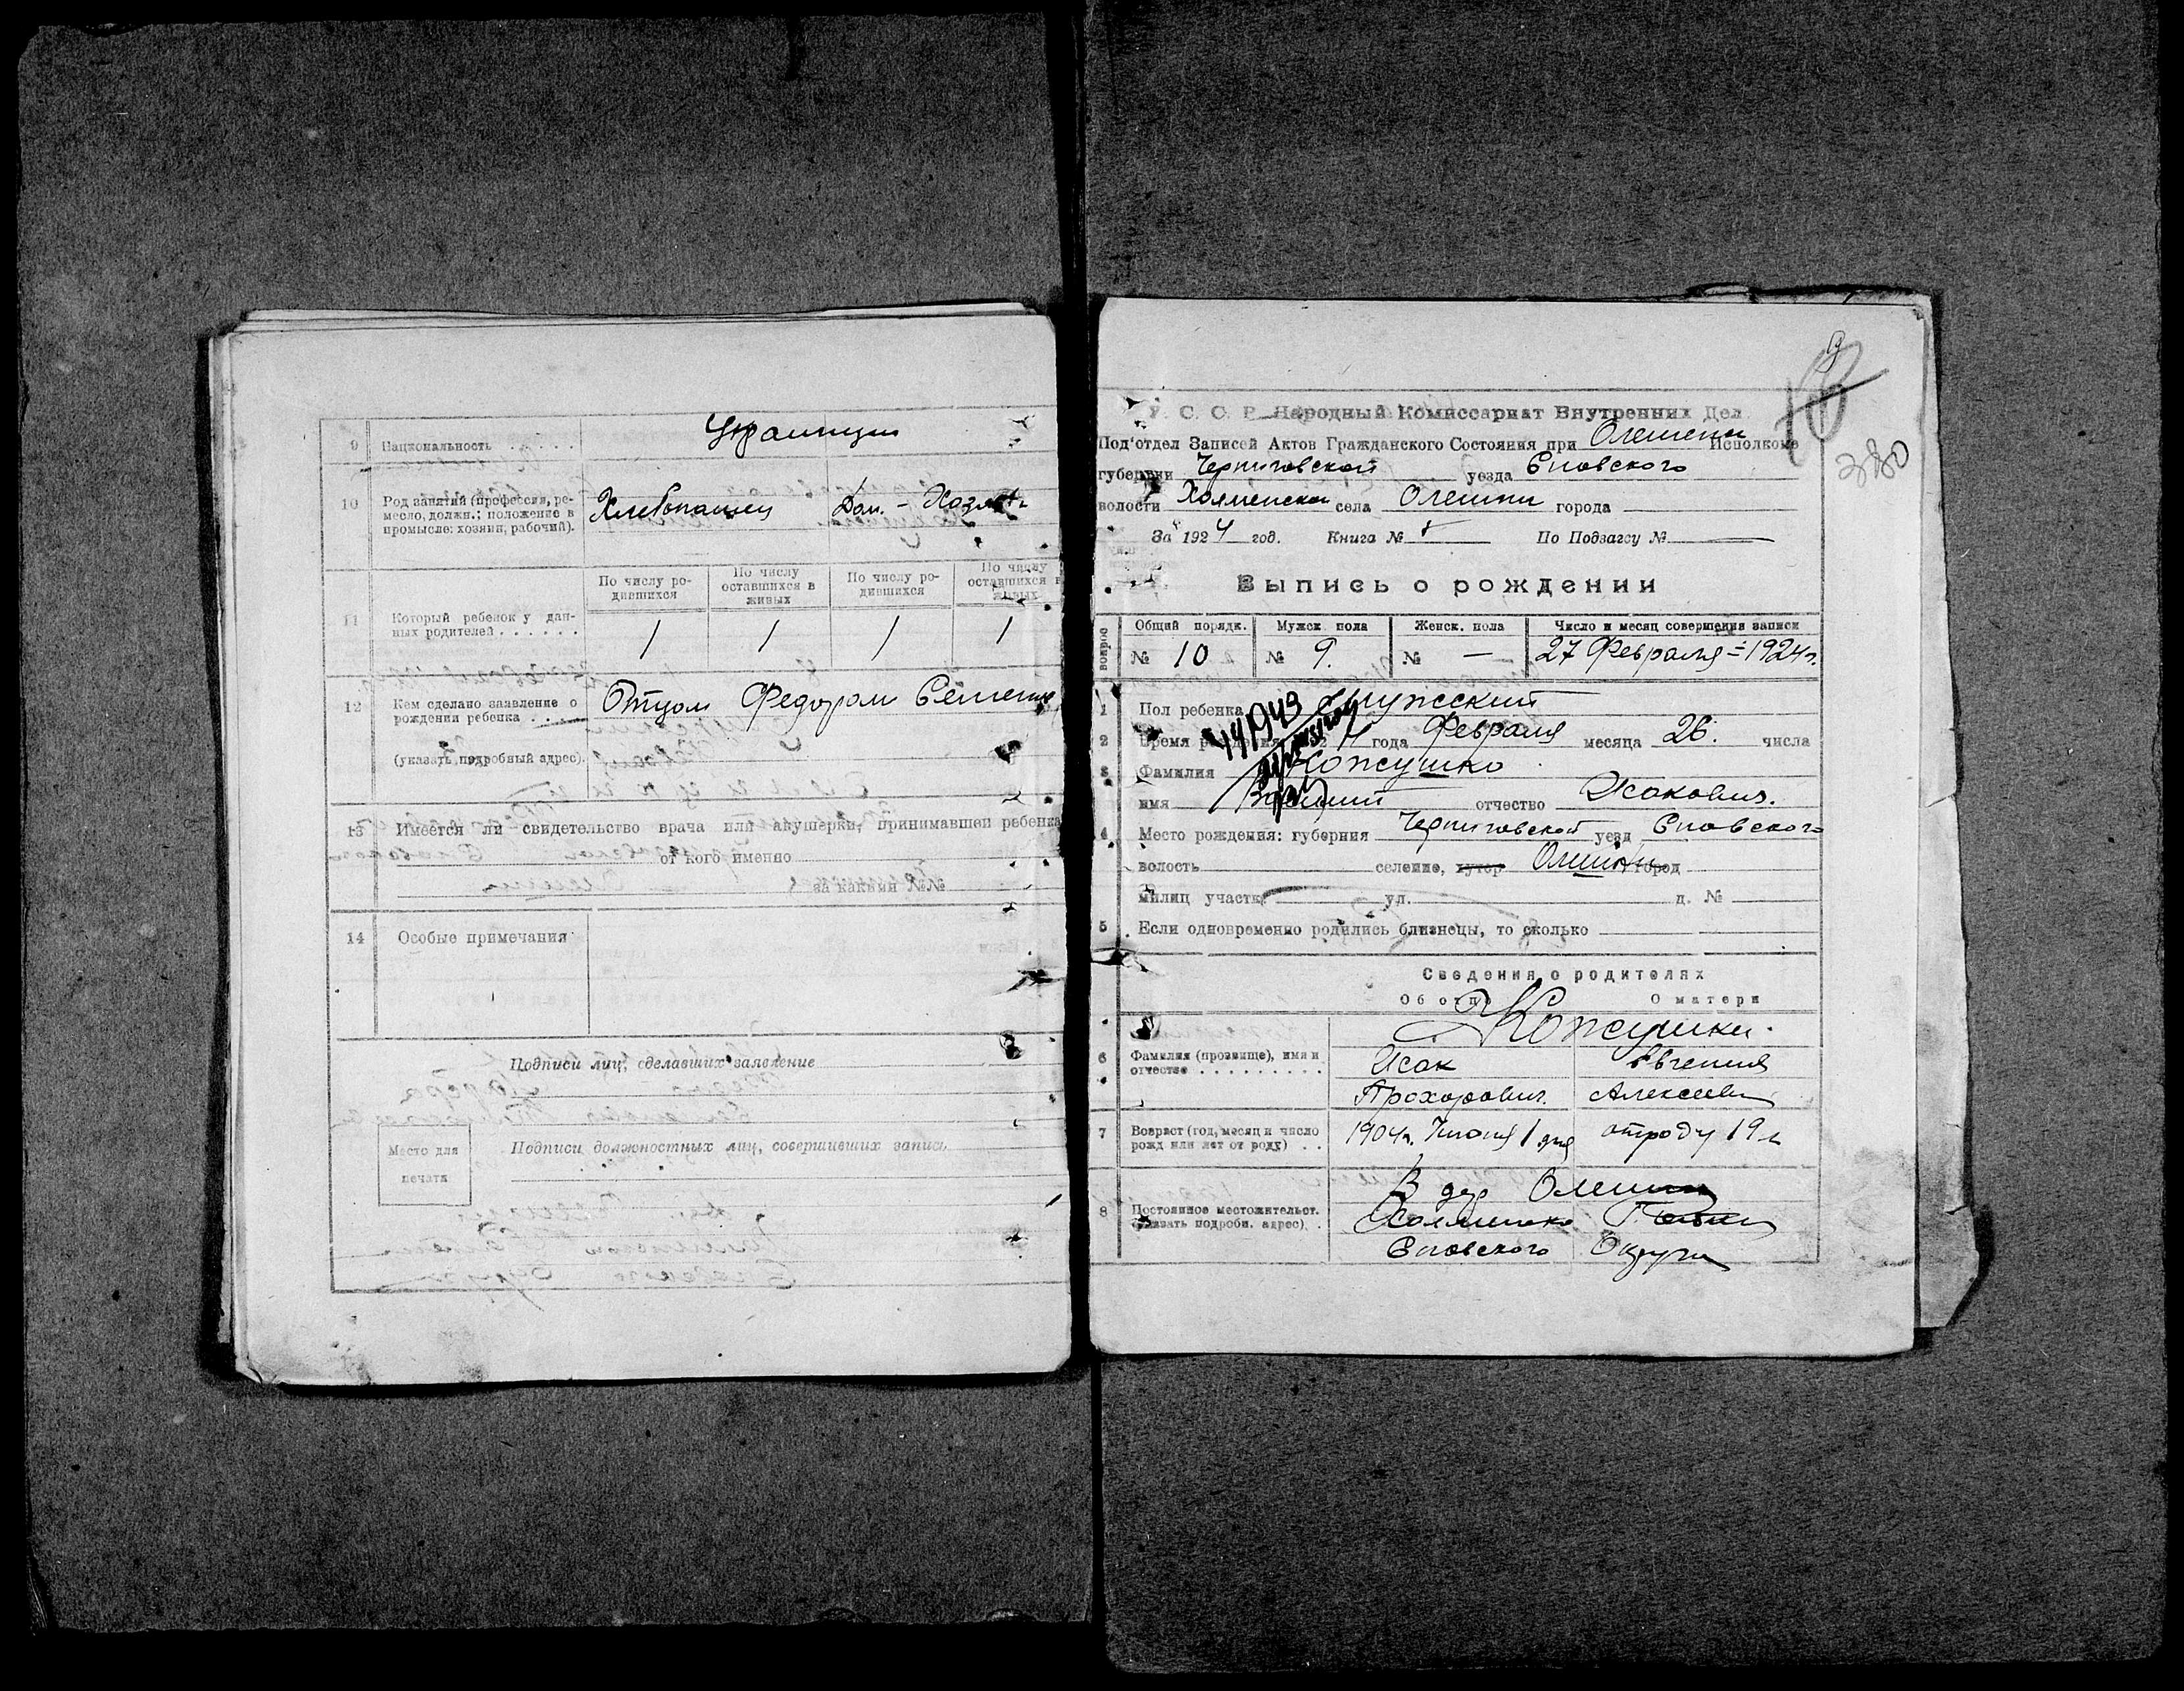 9 Национальность . . . . Украинцы
10 Род занятий (профессия, ре-
месло, должн.; положение в
промысле: хозяин, рабочий).
Хлебопашец Дом. - Хозяй
По числу ро-
дившихся
По числу
оставшихся в
живых
По числу ро-
дившихся
По числу
оставшихся в
живых
11 Который ребенок у дан-
ных родителей . . . . . .
1 1 1 1
12 Кем сделано заявление о
рождении ребенка . . . .
Отцом Федором
(указать подробный адрес).
13 Имеется ли свидетельство врача или акушерки, принимавшей ребенка
от кого именно
за каким №№
14 Особые примечания
Подписи лиц, сделавших заявление
Место для
печати
Подписи должностных лиц, совершивших запись
380
У. С. С. Р. Народный Комиссариат Внутренних Дел
Под'отдел Записей Актов Гражданского Состояния при Олешни Исполкоме
губернии Черниговской уезда Сновского
волости села Олешни города
За 1924 год. Книга № По Подзагсу №
Выпись о рождении
вопрос
Общий порядк. Мужск. пола Женск. пола Число и месяц совершения записи
№ 10 № 9. № — 27 Февраля 1924 г.
1 Пол ребенка мужеский
2 Время года Февраля месяца 26. числа
3 Фамилия Кожушко
имя отчество Исакович.
4 Место рождения: губерния Черниговской уезд Сновского
волость селение, хутор Олешни город
милиц участк ул. д. №
5 Если одновременно родились близнецы, то сколько
Сведения о родителях
Об отце О матери
Кожушки.
6 Фамилия (прозвище), имя и
отчество . . . . . . . . .
Исак Евгения
Прохорович. Алексеевн
7 Возраст (год, месяц и число
рожд или лет от роду) . .
1904 г. 1 дня отроду 19 л
8 Постоянное местожительст.
(указать подробн. адрес) .
В дер Олешни
Сновского Округи